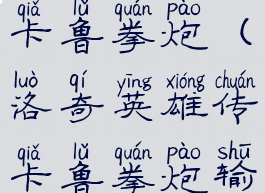 qiǎ lǔ quán pào
卡鲁拳炮（
luò qí yīng xióng chuán
洛奇英雄传
qiǎ lǔ quán pào shū
卡鲁拳炮输